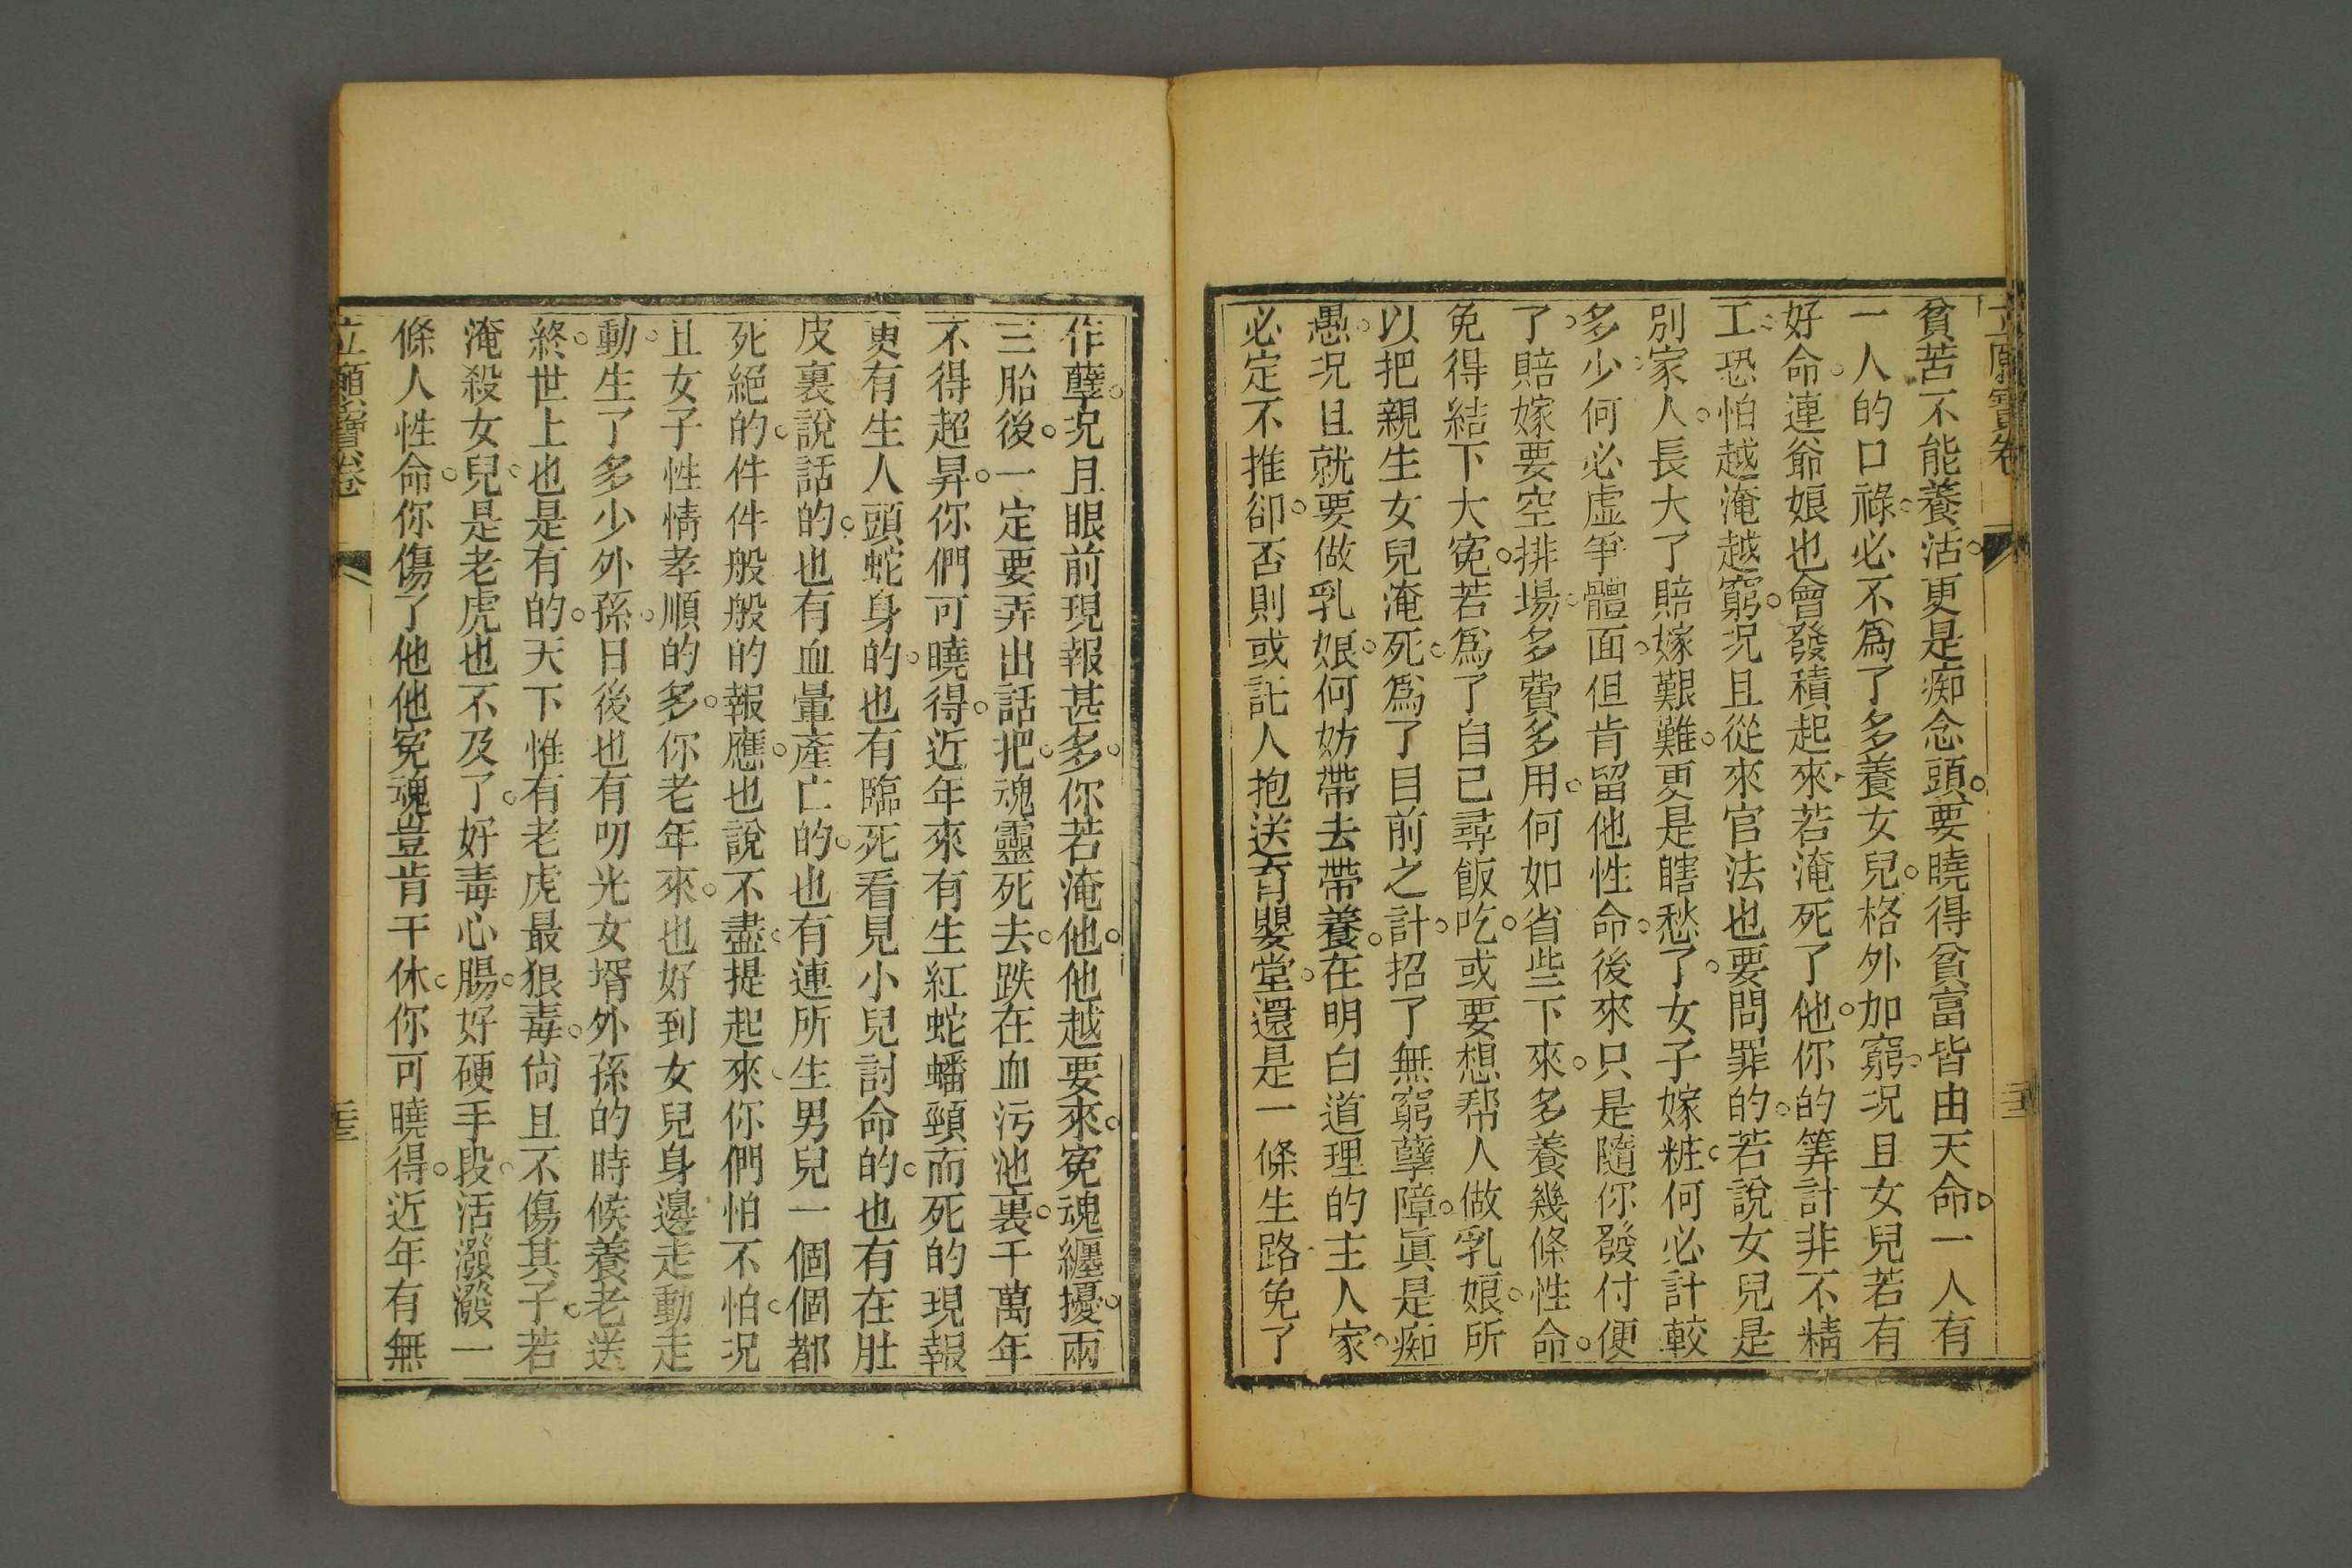 立願寶卷
貧苦不能養活。更是痴念頭。要曉得貧富皆由天命。一人有
一人的口祿。必不爲了多養女兒。格外加窮。况且女兒若有
好命。連爺娘也會發積起來。若淹死了他。你的筭計非不精
工。恐怕越淹越窮。况且從來官法也要問罪的。若說女兒是
別家人。長大了賠嫁艱難。更是瞎愁了。女子嫁粧。何必計較
多少。何必虛爭體面。但肯留他性命。後來只是隨你發付便
了。賠嫁要空排塲。多費多用。何如省些下來。多養幾條性命。
免得結下大寃。若爲了自己尋飯吃。或要想帮人做乳娘。所
以把親生女兒淹死。爲了目前之計。招了無窮孽障。眞是痴
愚。况且就要做乳娘。何妨帶去帶養。在明白道理的主人家。
必定不推卻。否則或託人抱送育嬰堂。還是一條生路。免了
作孽。况且眼前現報甚多。你若淹他。他越要來。寃魂纏擾。兩
三胎後。一定要弄出話把。魂靈死去。跌在血污池裏。千萬年
不得超昇。你們可曉得。近年來有生紅蛇蟠頸而死的現報
更有生人頭蛇身的。也有臨死看見小兒討命的。也有在肚
皮裏說話的。也有血暈產亡的。也有連所生男兒一個個都
死絕的。件件般般的報應。也說不盡。提起來。你們怕不怕。况
且女子性情孝順的多。你老年來。也好到女兒身邊走動走
動。生了多少外孫。日後也有叨光女壻外孫的時候。養老送
終。世上也是有的。天下惟有老虎最狠毒。尙且不傷其子。若
淹殺女兒。是老虎也不及了。好毒心腸。好硬手段。活潑潑一
條人性命。你傷了他。他寃魂豈肯干休。你可曉得。近年有無
立願寶卷